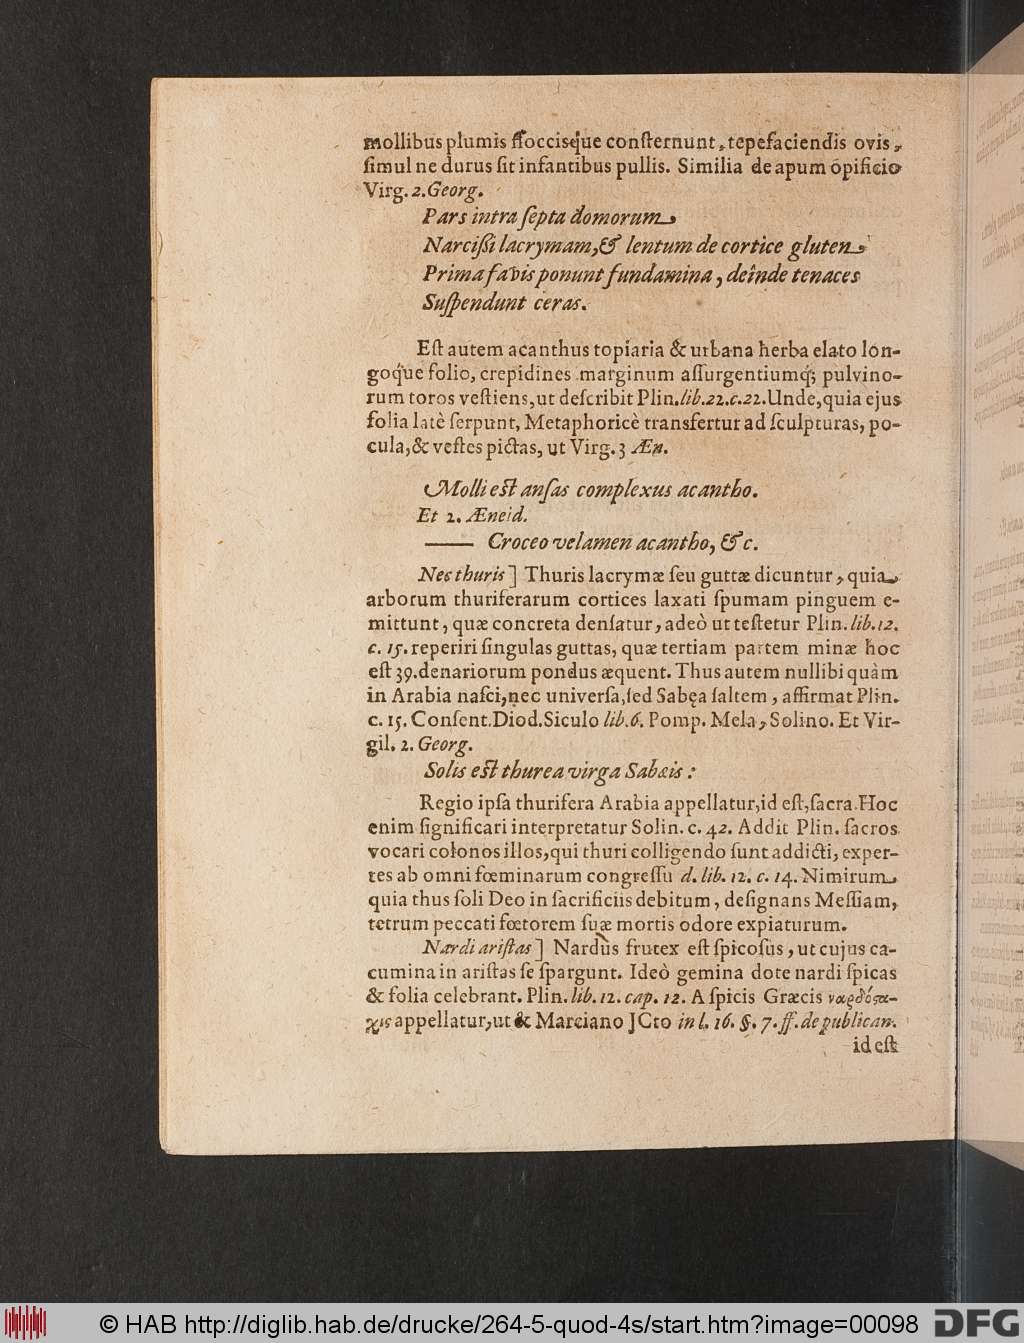 mollibus plumis floccisq́ue conſternunt, tepefaciendis ovis,
ſimul ne durus ſit infantibus pullis. Similia de apum opificio
Virg. 2. Georg.
Pars intra ſepta domorum,
Narciſſi lacrymam, & lentum de cortice gluten,
Prima favis ponunt fundamina, deinde tenaces
Suſpendunt ceras.
Eſt autem acanthus topiaria & urbana herba elato lon-
goq́ue folio, crepidines marginum aſſurgentiumq́; pulvino-
rum toros veſtiens, ut deſcribit Plin. lib. 22. c. 22. Unde, quia ejus
folia latè ſerpunt, Metaphoricè transfertur ad ſculpturas, po-
cula, & veſtes pictas, ut Virg. 3 Æn.
Molli eſt anſas complexus acantho.
Et 2. Æneid.
—— Croceo velamen acantho, &c.
Nec thuris] Thuris lacrymæ ſeu guttæ dicuntur, quia
arborum thuriferarum cortices laxati ſpumam pinguem e-
mittunt, quæ concreta denſatur, adeò ut teſtetur Plin. lib. 12.
c. 15. reperiri ſingulas guttas, quæ tertiam partem minæ hoc
eſt 39. denariorum pondus æquent. Thus autem nullibi quàm
in Arabia naſci, nec univerſa, ſed Sabęa ſaltem, affirmat Plin.
c. 15. Conſent. Diod. Siculo lib. 6. Pomp. Mela, Solino. Et Vir-
gil. 2. Georg.
Solis eſt thurea virga Sabæis:
Regio ipſa thurifera Arabia appellatur, id eſt, ſacra. Hoc
enim ſignificari interpretatur Solin. c. 42. Addit Plin. ſacros
vocari colonos illos, qui thuri colligendo ſunt addicti, exper-
tes ab omni fœminarum congreſſu d. lib. 12. c. 14. Nimirum
quia thus ſoli Deo in ſacrificiis debitum, deſignans Meſſiam,
tetrum peccati fœtorem ſuæ mortis odore expiaturum.
Nardi ariſtas] Nardus frutex eſt ſpicoſus, ut cujus ca-
cumina in ariſtas ſe ſpargunt. Ideò gemina dote nardi ſpicas
& folia celebrant. Plin. lib. 12. cap. 12. A ſpicis Græcis ναρδόςα-
χις appellatur, ut & Marciano JCto in l. 16. §. 7. ff. de publican.
id eſt
© HAB http://diglib.hab.de/drucke/264-5-quod-4s/start.htm?image=00098
DFG